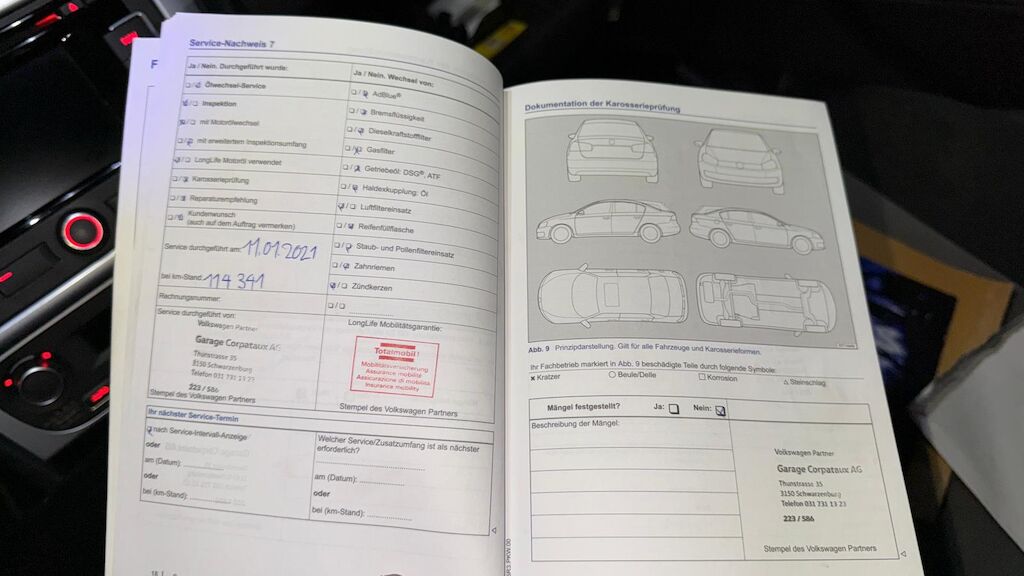 Service-Nachweis 7
Ja / Nein. Durchgeführt wurde:
Ölwechsel-Service
Inspektion
mit Motorölwechsel
mit erweitertem Inspektionsumfang
LongLife Motoröl verwendet
Karosserieprüfung
Reparaturempfehlung
Kundenwunsch
(auch auf dem Auftrag vermerken)
Service durchgeführt am: 11.01.2021
bei km-Stand: 114 341
Rechnungsnummer:
Service durchgeführt von:
Volkswagen Partner
Garage Corpataux AG
Thunstrasse 35
3150 Schwarzenburg
Telefon 031 731 13 23
223 / 586
Stempel des Volkswagen Partners
Ja / Nein. Wechsel von:
AdBlue®
Bremsflüssigkeit
Dieselkraftstofffilter
Gasfilter
Getriebeöl: DSG®, ATF
Haldexkupplung: Öl
Luftfiltereinsatz
Reifenfüllflasche
Staub- und Pollenfiltereinsatz
Zahnriemen
Zündkerzen
LongLife Mobilitätsgarantie:
Totalmobil!
Mobilitätsversicherung
Assurance mobilité
Assicurazione di mobilità
Insurance mobility
Stempel des Volkswagen Partners
Ihr nächster Service-Termin
nach Service-Intervall-Anzeige
oder
am (Datum):
oder
bei (km-Stand):
Welcher Service/Zusatzumfang ist als nächster
erforderlich?
am (Datum):
oder
bei (km-Stand):
Dokumentation der Karosserieprüfung
Abb. 9 Prinzipdarstellung. Gilt für alle Fahrzeuge und Karosserieformen.
Ihr Fachbetrieb markiert in Abb. 9 beschädigte Teile durch folgende Symbole:
x Kratzer ○ Beule/Delle □ Korrosion △ Steinschlag
Mängel festgestellt? Ja: Nein:
Beschreibung der Mängel:
Volkswagen Partner
Garage Corpataux AG
Thunstrasse 35
3150 Schwarzenburg
Telefon 031 731 13 23
223 / 586
Stempel des Volkswagen Partners